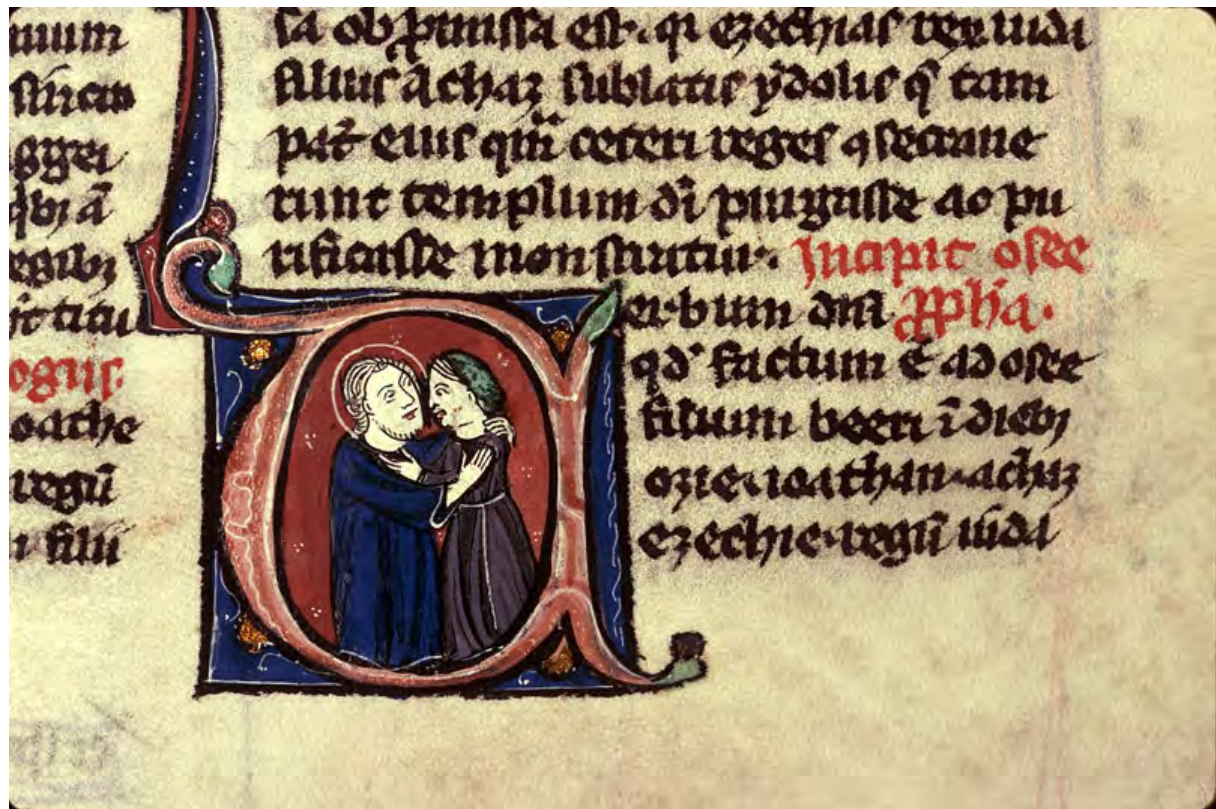 nium
ogus.
regū
i filii
sa ob p̄missa est. qr ezechias rex iuda
filius Achaz sublatis ydolis q̄ tam
pat̄ eius qm̄ ceteri reges ꝯsecraue
runt templum dī purgasse ac pu
rificasse monstratur. Incipit osee
erbum dn̄i ꝓph̄a.
qd' factum ē ad osee
filium beeri ī dieb
ozie. ioathan. achaz
ezechie. regū iuda